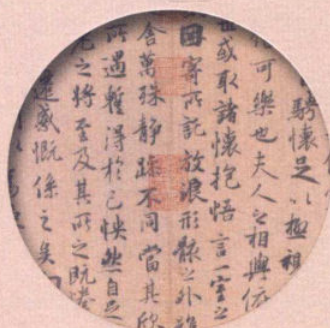 騁懷足以極視
可樂也夫人之相與俯
世或取諸懷抱悟言一室之
因寄所託放浪形骸之外雖
舍萬殊靜躁不同當其欣
所遇蹔得於己怏然自足
之將至及其所之既惓
遷感慨係之矣向